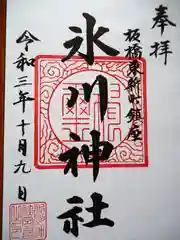 奉拝
板橋東新町鎮座
氷川神社
令和三年十月九日